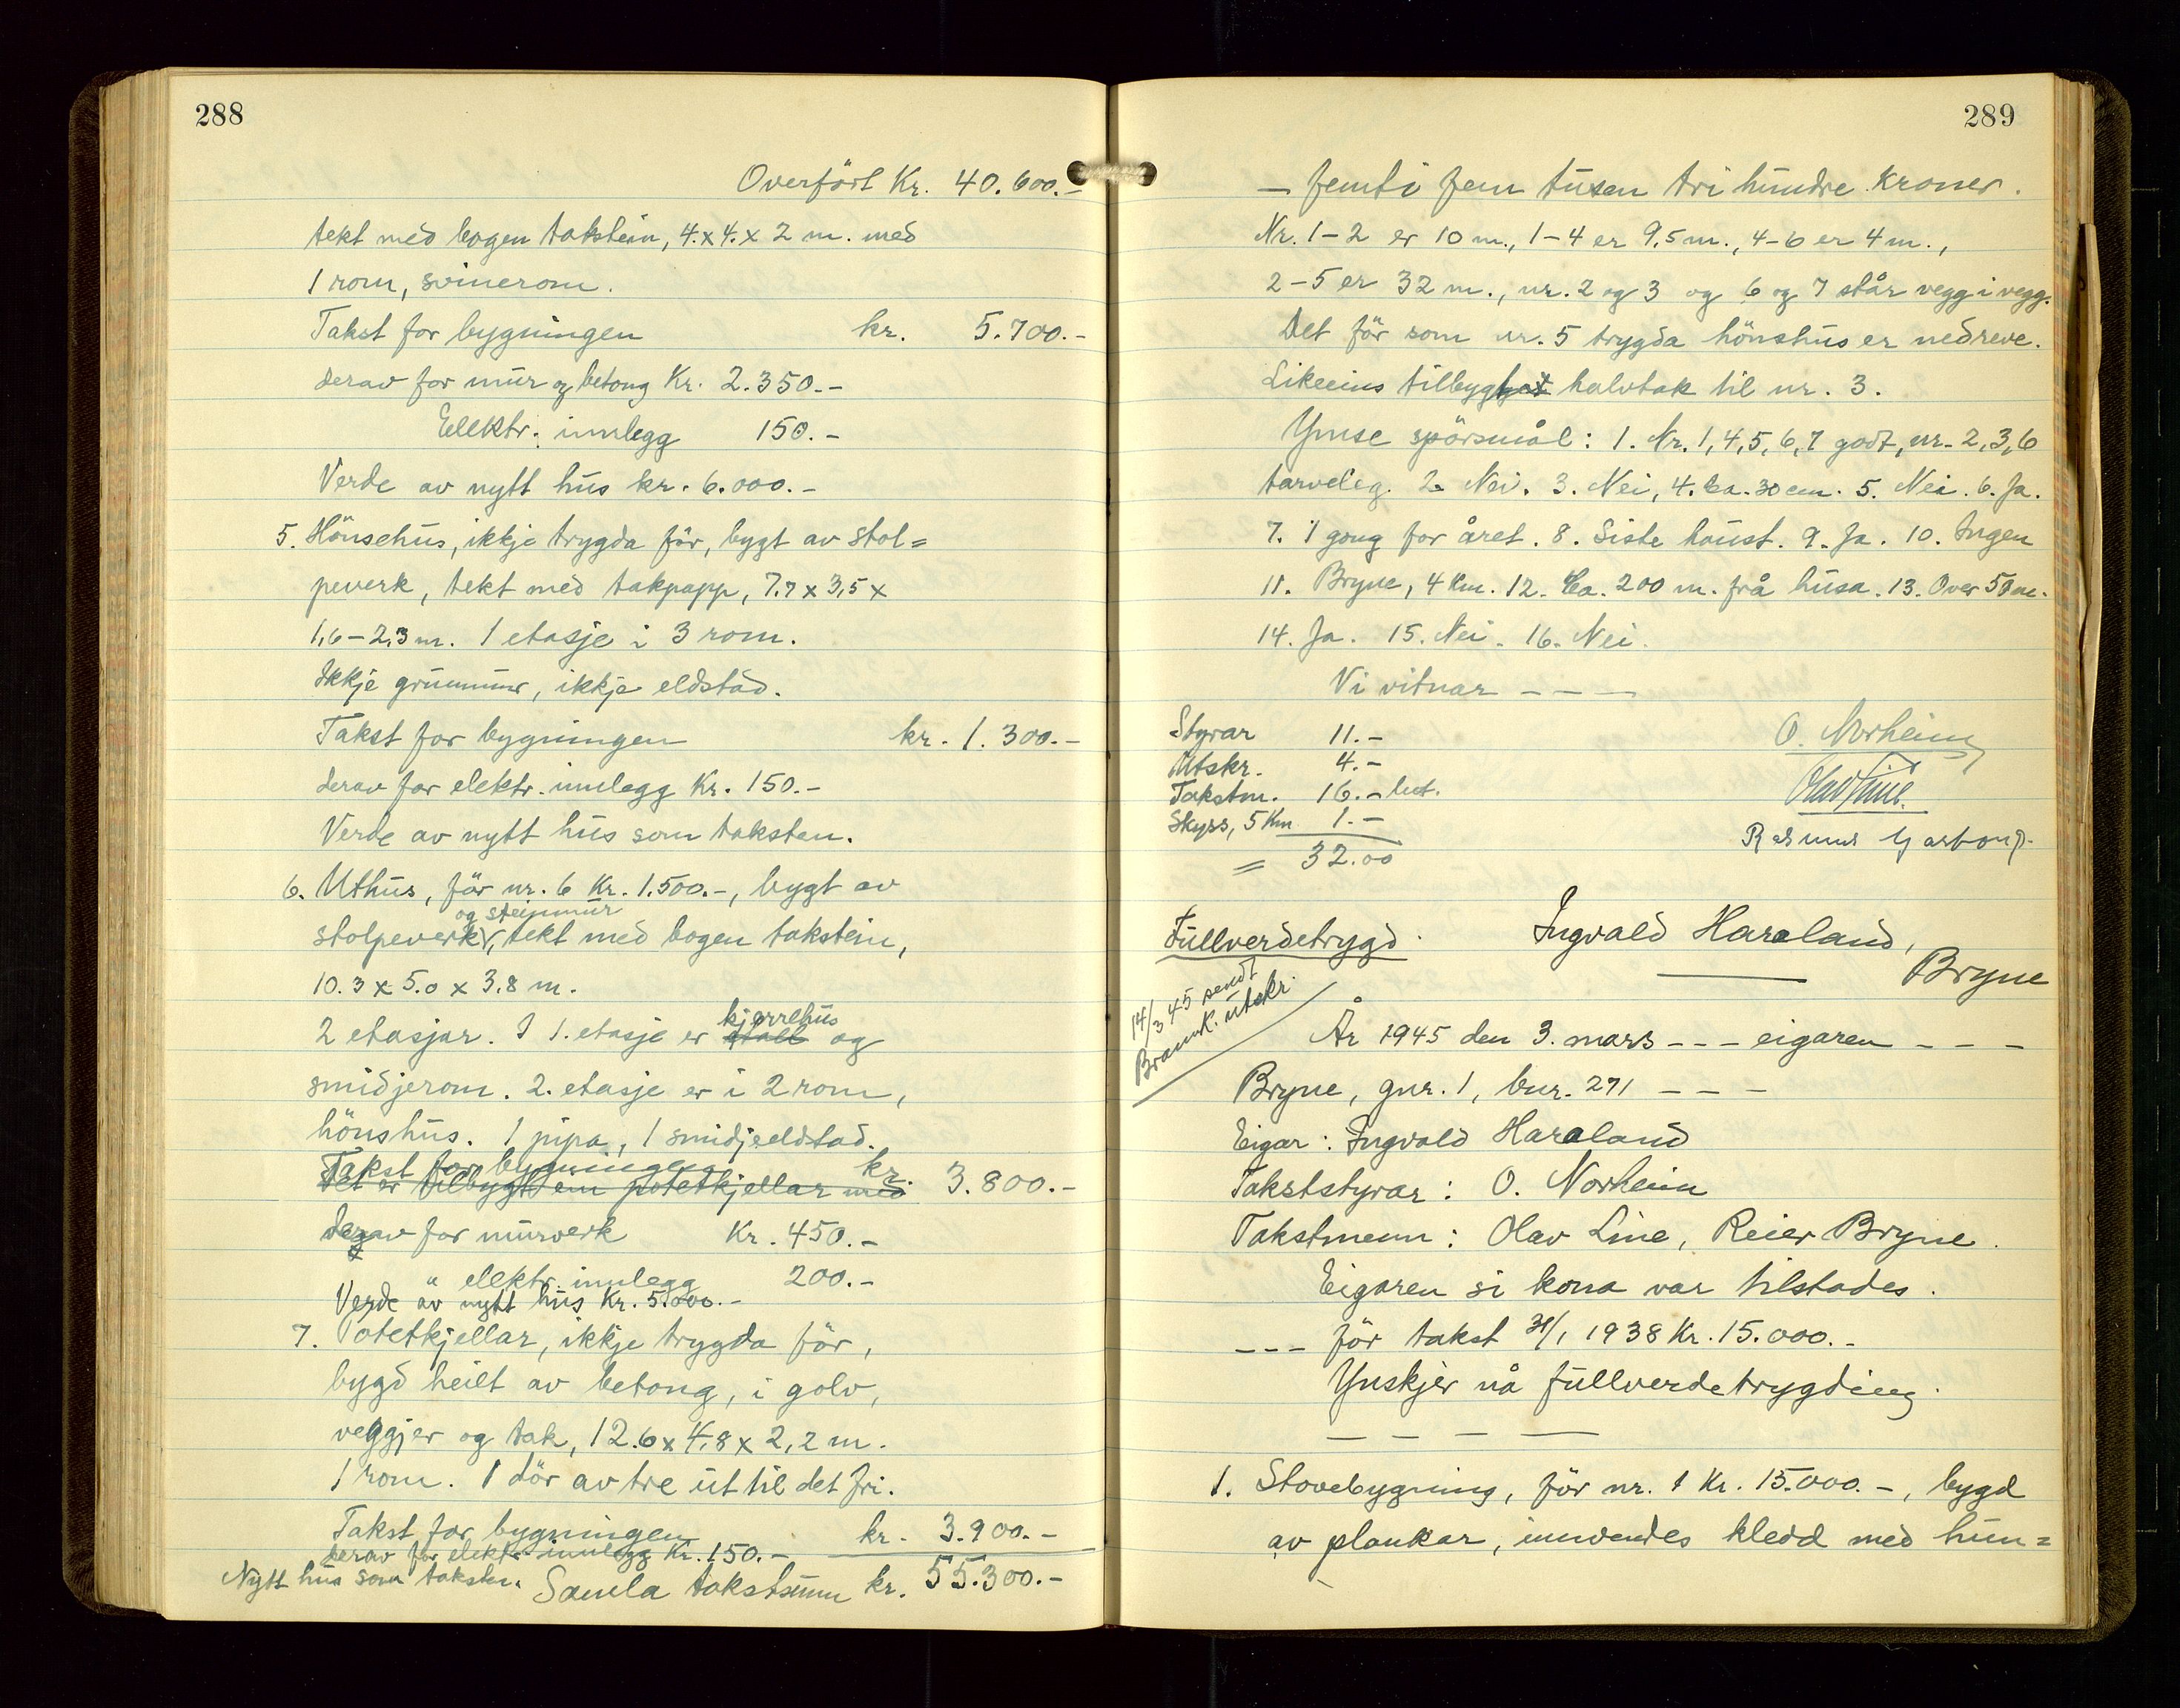 288
Overfört Kr. 40.600.-
tekt med bogen takstein, 4.x4.x 2 m. med
1 rom, svinerom.
Takst for bygningen kr. 5.700.-
derav for mur og betong Kr. 2.350.-
Elektr. innlegg 150.-
Verde av nytt hus kr. 6.000.-
5. Hönsehus, ikkje trygda för, bygt av stol=
peverk, tekt med takpapp, 7.7 x 3,5 x
1,6-2,3 m. 1 etasje i 3 rom.
Ikkje grunnmur, ikkje eldstad.
Takst for bygningen kr. 1.300.-
derav for elektr. innlegg Kr. 150.-
Verde av nytt hus som taksten.
6. Uthus, för nr. 6 Kr. 1.500.-, bygt av
og steinmur
stolpeverk, tekt med bogen takstein,
10.3 x 5.0 x 3.8 m.
kjerrehus
2 etasjar. I 1. etasje er stall og
smidjerom. 2. etasje er i 2 rom,
hönshus. 1 pipa, 1 smidjeeldstad.
Takst for bygningen kr. 3.800.-
Det er tilbygt ein potetkjellar med
derav for murverk Kr. 450.-
" elektr. innlegg 200.-
Verde av nytt hus Kr. 5.000.-
7. Potetkjellar, ikkje trygda för,
bygd heilt av betong, i golv,
veggjer og tak, 12.6 x 4,8 x 2,2 m.
1 rom. 1 dör av tre ut til det fri.
Takst for bygningen kr. 3.900.-
derav for elektr. innlegg Kr. 150.-
Nytt hus som taksten. Samla takstsum kr. 55.300.-
289
– femti fem tusen tri hundre kroner.
Nr. 1-2 er 10 m., 1-4 er 9,5 m., 4-6 er 4 m.,
2-5 er 32 m., nr. 2 og 3 og 6 og 7 står vegg i vegg.
Det för som nr. 5 trygda hönshus er nedreve.
Likeeins tilbygt halvtak til nr. 3.
Ymse spörsmål: 1. Nr. 1,4,5,6,7 godt, nr. 2,3,6
tarveleg. 2. Nei. 3. Nei, 4. Ca. 30 cm. 5. Nei. 6. Ja.
7. 1 gong for året. 8. Siste haust. 9. Ja. 10. Ingen
11. Bryne, 4 Km. 12. Ca. 200 m. frå husa. 13. Over 50 m.
14. Ja. 15. Nei. 16. Nei.
Vi vitnar – – –
Styrar 11.-
Utskr. 4.-
Takstm. 16.- lut.
Skyss, 5 Km 1.-
= 32.00
O. Norheim
Olav Line.
Rasmus Garborg.
Fullverdetrygd.
Ingvald Haraland,
Bryne
14/3 45 sendt
Brannk. utskr.
År 1945 den 3. mars – – – eigaren – – –
Bryne, gnr. 1, bnr. 271 – – –
Eigar: Ingvald Haraland
Takststyrar: O. Norheim
Takstmenn: Olav Line, Reier Bryne.
Eigaren si kona var tilstades.
– – – för takst 31/1 1938 Kr. 15.000.-
Ynskjer nå fullverdetrygding.
– – – –
1. Stovebygning, för nr. 1 Kr. 15.000.-, bygd
av plankar, innvendes kledd med hun=